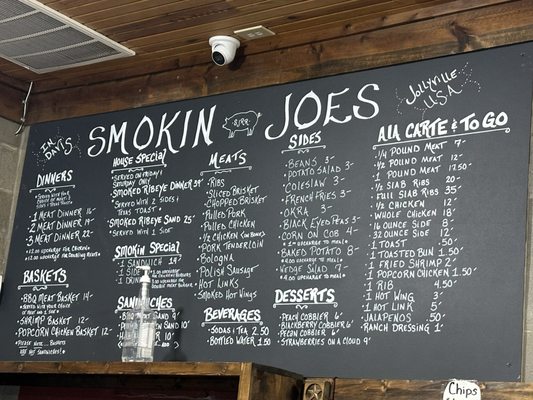 SMOKIN JOES
SJBR
IN DAVIS
Jollyville
USA
DINNERS
Served with 2
1 Meat Dinner 16
2 Meat Dinner 19
3 Meat Dinner 22
BASKETS
BBQ Meat Basket 14
Shrimp Basket 12
Popcorn Chicken Basket 12
House Special
Served on Friday &
Saturday Only
Smoked Ribeye Dinner 39
Served with 2 Sides &
Texas Toast
Smoked Ribeye Sand 25
Served with 1 Side
Smokin Special
1 Sandwich
1 Side
Sandwiches
MEATS
Ribs
Sliced Brisket
Chopped Brisket
Pulled Pork
Pulled Chicken
1/2 Chicken (w/ Bones)
Pork Tenderloin
Bologna
Polish Sausage
Hot Links
Smoked Hot Wings
BEVERAGES
Sodas & Tea 2.50
Bottled Water 1.50
SIDES
Beans 3
Potato Salad 3
Coleslaw 3
French Fries 3
Okra 3
Black Eyed Peas 3
Corn on Cob 4
Baked Potato 8
Wedge Salad 7
DESSERTS
Peach Cobbler 6
Blackberry Cobbler 6
Pecan Cobbler 6
Strawberries on a Cloud 9
Ala Carte & To Go
1/4 Pound Meat 7
1/2 Pound Meat 12
1 Pound Meat 17.50
1/2 Slab Ribs 20
Full Slab Ribs 35
1/2 Chicken 12
Whole Chicken 18
16 Ounce Side 8
32 Ounce Side 12
1 Toast .50
1 Toasted Bun 1.50
1 Fried Shrimp 2
1 Popcorn Chicken 1.50
1 Rib 4.50
1 Hot Wing 3
1 Hot Link 5
Jalapenos .50
Ranch Dressing 1
Chips